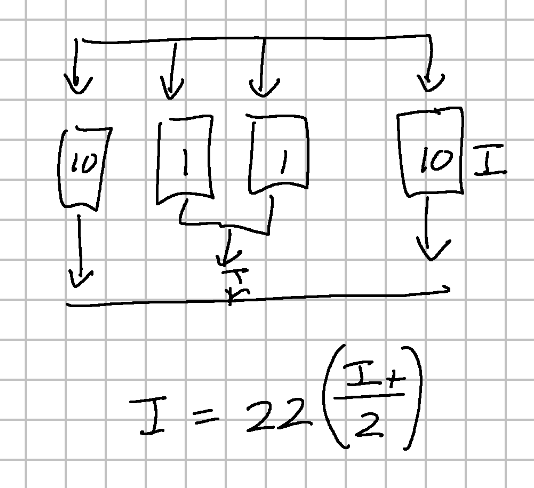 10 1 1 10 I
I
I = 22 (I+/2)